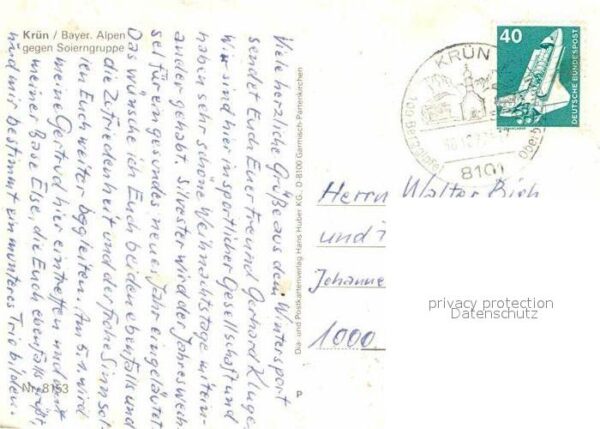 Krün / Bayer. Alpen
gegen Soierngruppe
Viele herzliche Grüße aus dem Wintersport
sendet Euch Euer Freund Gerhard Kluge,
Wir sind hier in sportlicher Gesellschaft und
haben sehr schöne Weihnachtstage mitein-
ander gehabt. Silvester wird der Jahreswech-
sel für ein gesundes neues Jahr eingeläutet
Das wünsche ich Euch beiden ebenfalls und
die Zufriedenheit und der frohe Sinn sol-
len Euch weiter begleiten. Am 5.1. wird
meine Gertrud hier eintreffen und mit
meiner Base Else, die Euch ebenfalls grüßt,
wird mir bestimmt ein munteres Trio bilden.
Nr. 8153
Dia- und Postkartenverlag Hans Huber KG., D 8100 Garmisch-Partenkirchen
P
KRÜN
8101
40
DEUTSCHE BUNDESPOST
Herrn Walter
und
Johanne
1000
privacy protection
Datenschutz